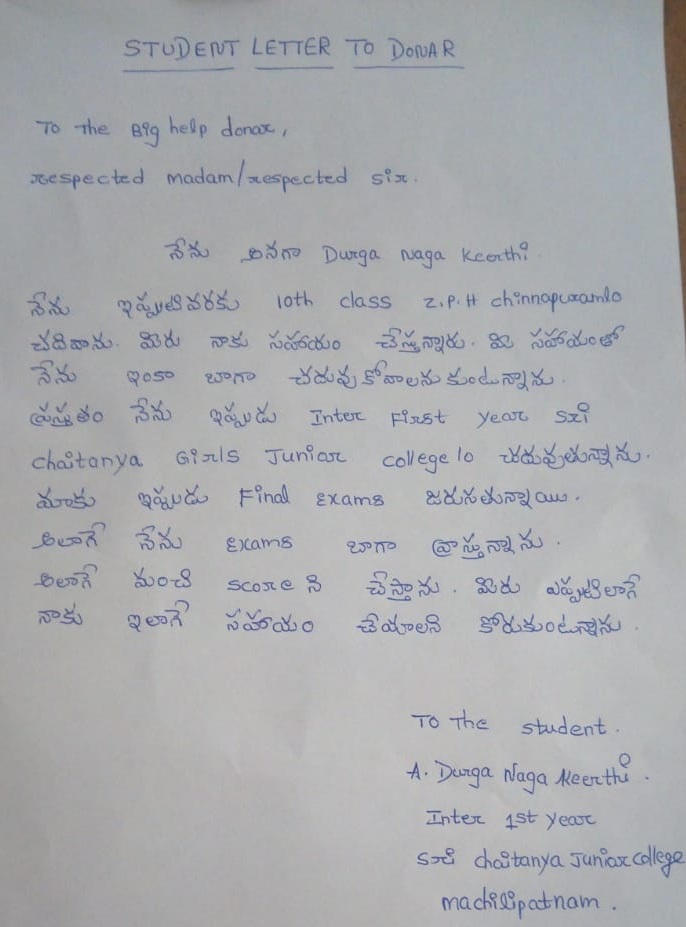 STUDENT LETTER TO DONAR
To the Big help donar,
respected madam/respected sir.
నేను అనగా Durga Naga Keerthi
నేను ఇప్పటివరకు 10th class Z.P.H chinnapuramlo
చదివాను. మీరు నాకు సహాయం చేస్తున్నారు. మీ సహాయంతో
నేను ఇంకా బాగా చదువుకోవాలనుకుంటున్నాను.
ప్రస్తుతం నేను ఇప్పుడు Inter First year Sri
Chaitanya Girls Junior college lo చదువుతున్నాను.
మాకు ఇప్పుడు Final Exams జరుగుతున్నాయి.
అలాగే నేను Exams బాగా వ్రాస్తున్నాను.
అలాగే మంచి score ని చేస్తాను. మీరు ఎప్పటిలాగే
నాకు ఇలాగే సహాయం చేయాలని కోరుకుంటున్నాను.
To The student.
A. Durga Naga Keerthi.
Inter 1st year
Sri chaitanya Junior college
machilipatnam.